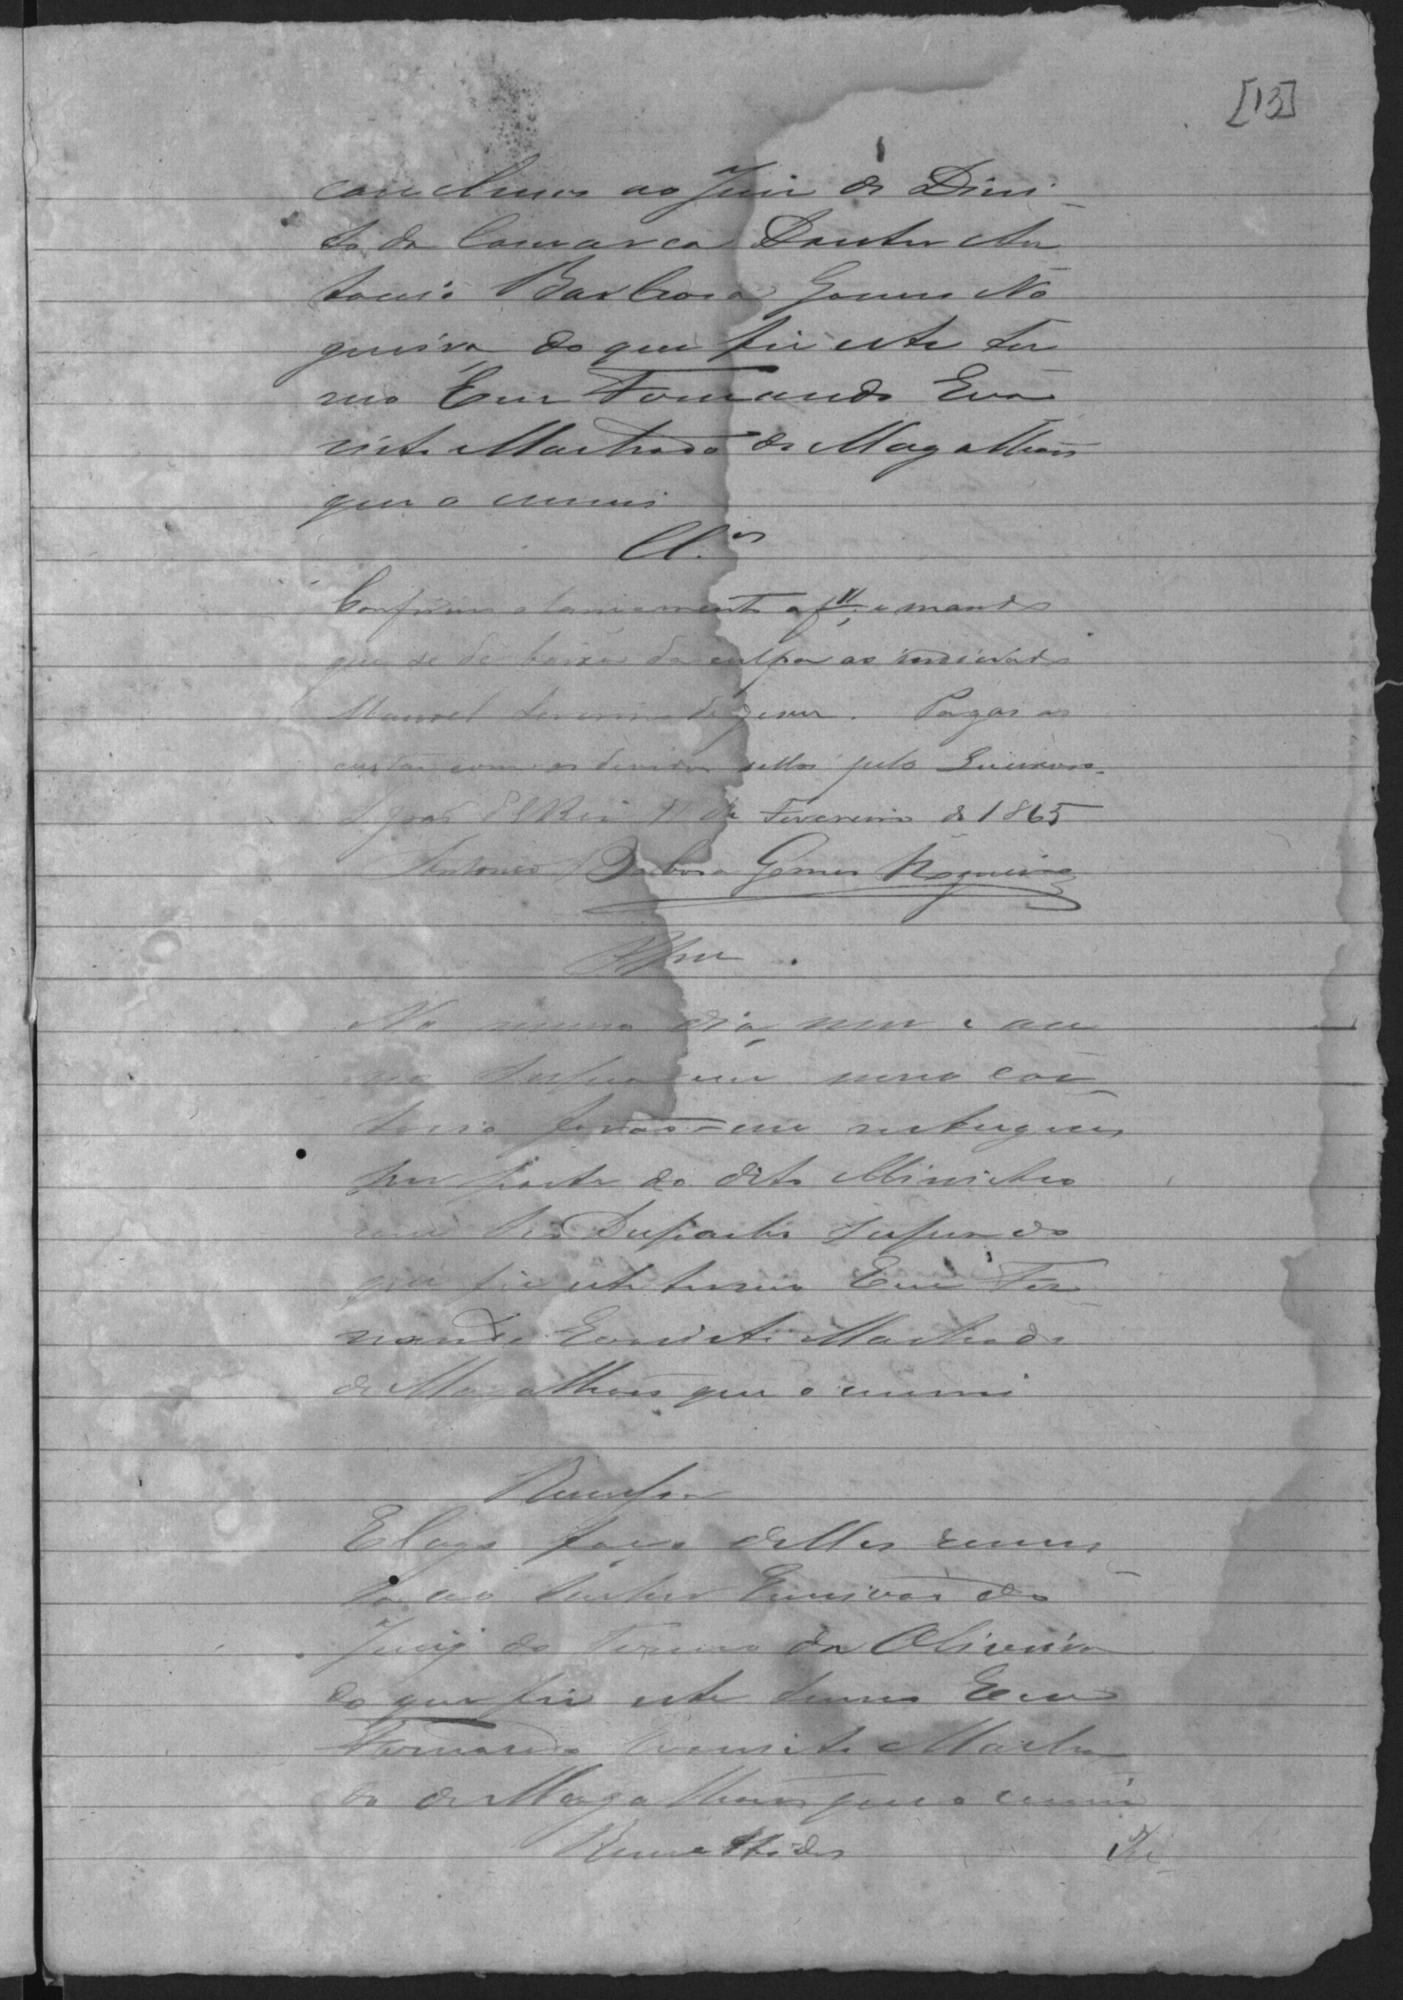 [13]
conclusos ao Juiz de Direi-
to da Comarca Doutor An-
tonio Barbosa Gomes No-
gueira do que fiz este ter-
mo Eu Fernando Eva-
risto Machado de Magalhães
que o escrevi
Cl.os
Confirmo o lançamento a f 11, e mando
que se de baixa da culpa ao indiciado
Manoel de Jesus. Pagas as
custas com os devidos sellos pelo Escrivão.
S João El Rei 11 de Fevereiro de 1865
Antonio Barbosa Gomes Nogueira
No mesmo dia mez e an-
no supra em meo car-
torio forão-me entregues
por parte do dito Ministro
com seo Despacho supra do
que fiz este termo Eu Fer-
nando Evaristo Machado
de Magalhães que o escrevi
Remessa
E logo faço delles remes-
sa ao Escrivão do
Jury do Termo da Oliveira
do que fiz este termo Eu
Fernando Evaristo Macha-
do de Magalhães que o escrevi
Remettidos